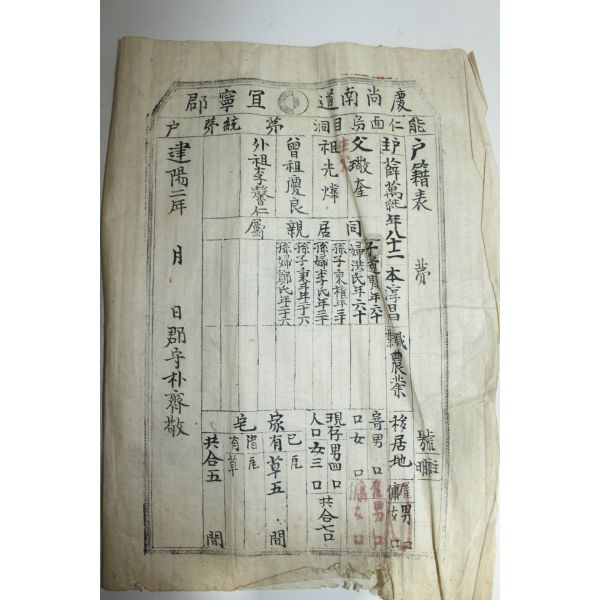 慶尚南道 宜寧郡
能仁面烏目洞 第 統 第 戶
戶籍表 第 號
戶主 薛萬 年八十二 本淳昌 職農業 移居地
父 璥奎
祖 光燁
曾祖 慶良
外祖 李馨仁
同居親
子 男年六十
婦洪氏年六十
孫子東 年三十
孫婦李氏年三十
孫子東 年二十六
孫婦鄭氏年二十六
雇男 口
傭女 口
寄男 口
口女 口
雇男 口
傭女 口
現存男四口
人口女三口
共合七口
家有草五 間
已 瓦
宅 借 瓦
有 草
共合五 間
建陽二年 月 日 郡守朴齊敬